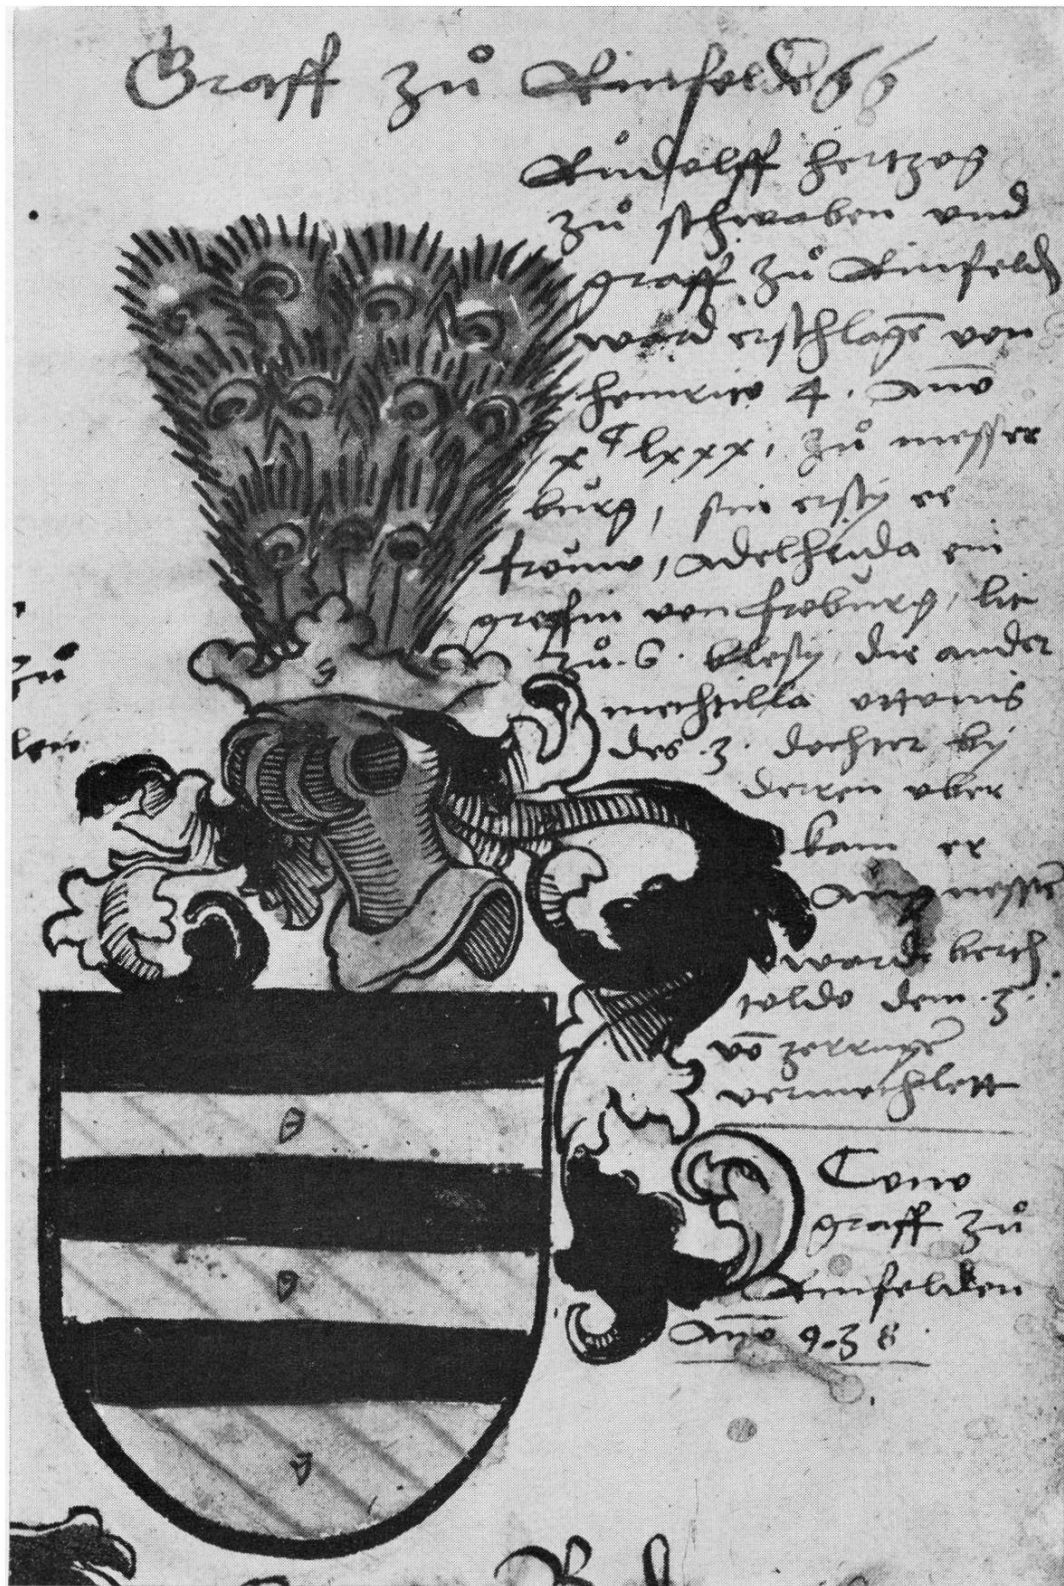 Graff zů Rinfelden
Růdolff hertzog
zů schwaben vnd
graff zů Rinfeldē
ward erschlagē von
heinrico 4. Anno
xᶜlxxx, zů messer
burg, sin ersty ee
frouw, Adelheida ein
greffin von froburg, lit
zů .S. blesy, die ander
mechtilla ottonis
des .3. dochter by
derren vber
kam er
wards berch
toldo dem .3.
vō zerringē
vermechlett
Cono
graff zů
Rinfelden
Anno 938.
zů